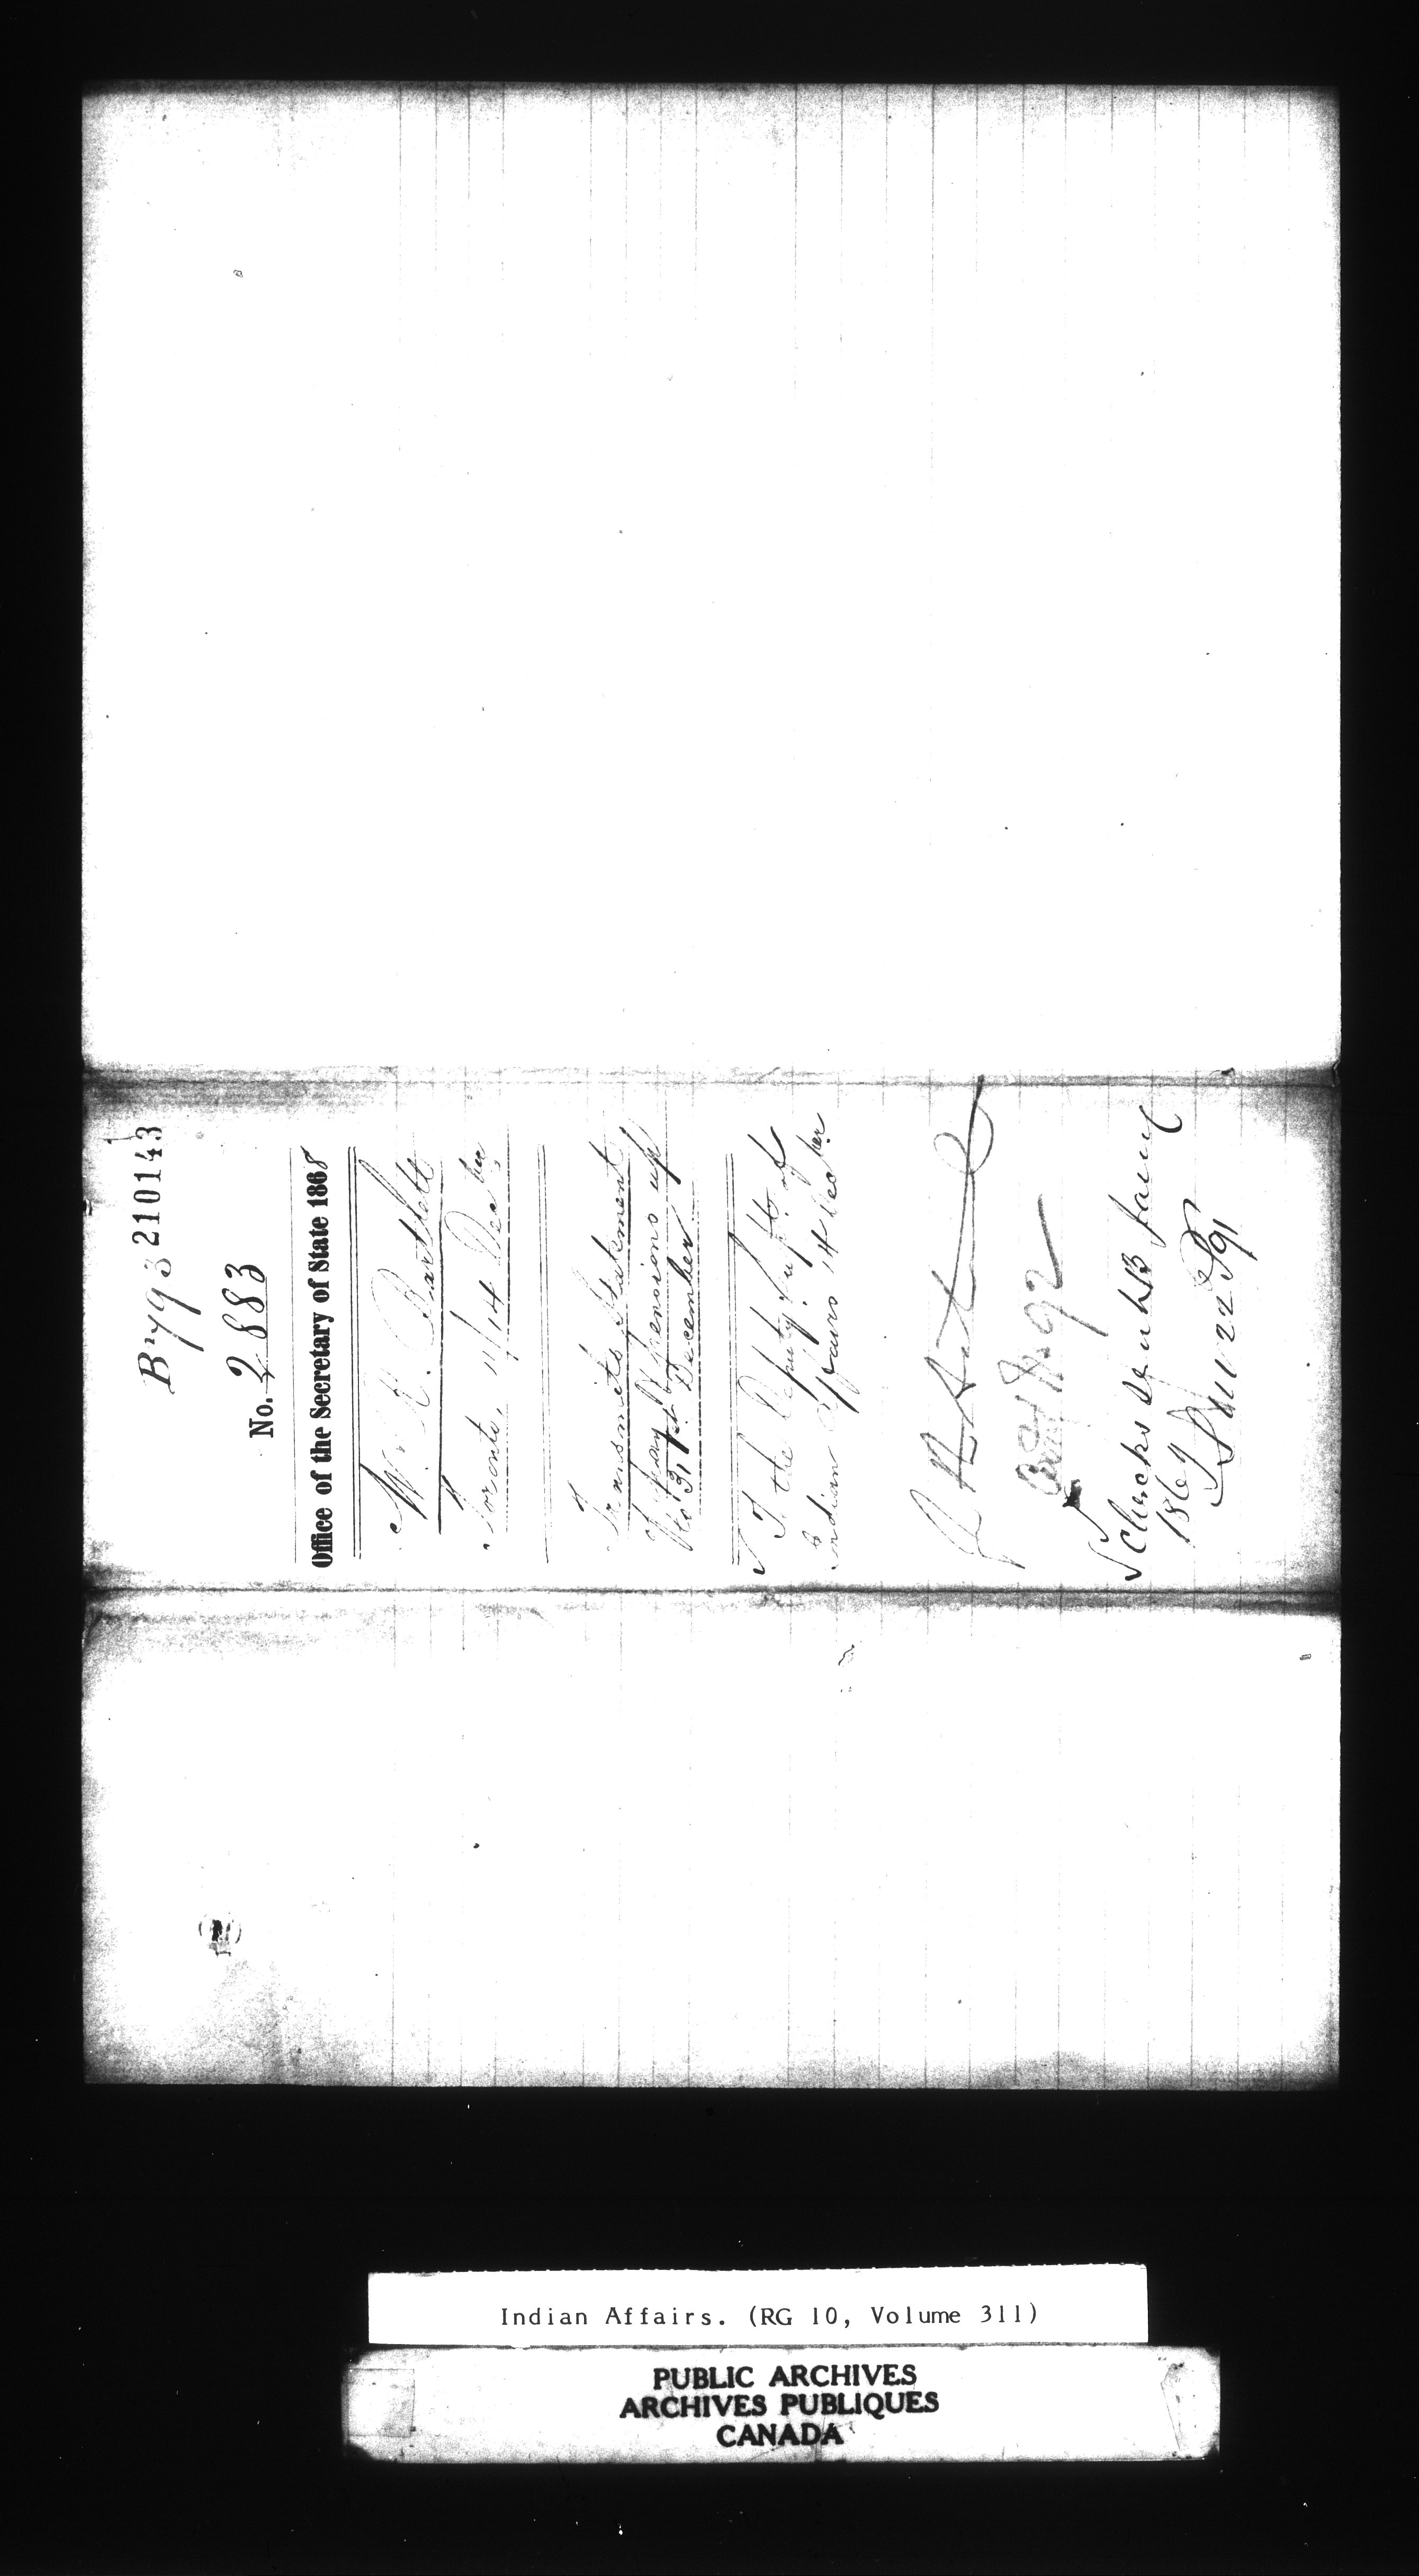 210143
B 793
No. 2883
Office of the Secretary of State 1868
W. R. Bartlett
Toronto, 11/14 Decber
Transmits Statement
of pay & pensions up
to 31st December
To the Deputy Supt. of
Indian Affairs 14 Decber
392
Checks sent 13 Jany
1869
Indian Affairs. (RG 10, Volume 311)
PUBLIC ARCHIVES
ARCHIVES PUBLIQUES
CANADA